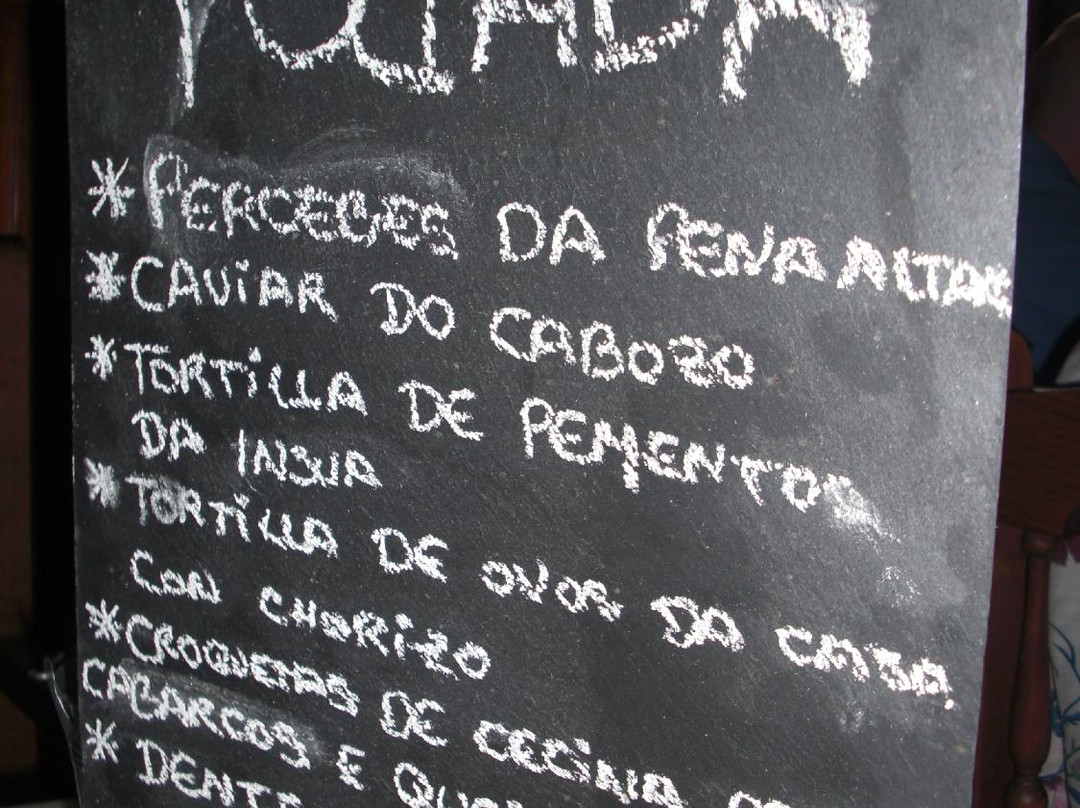 * PERCEBES DA PENA
* CAVIAR DO CABOZO
* TORTILLA DE PEMENTOS
DA INSUA
* TORTILLA DE OVOS DA CASA
CON CHORIZO
* CROQUETAS DE CECINA
CABARCOS E
* DENTE